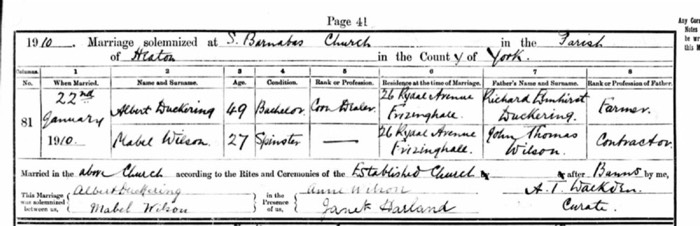 Page 41
Any Cor
Notes
be wr
the m
1910. Marriage solemnized at S. Barnabas Church in the Parish
of Heaton in the County of York.
Columns. 1 2 3 4 5 6 7 8
No. When Married. Name and Surname. Age. Condition. Rank or Profession. Residence at the time of Marriage. Father's Name and Surname. Rank or Profession of Father.
81 22nd January 1910. Albert Duckering 49 Bachelor Corn Dealer. 26 Ryal Avenue Frizinghall. Richard Duckering. Farmer.
Mabel Wilson 27 Spinster — 26 Ryal Avenue Frizinghall. John Thomas Wilson. Contractor
Married in the above Church according to the Rites and Ceremonies of the Established Church after Banns by me,
This Marriage was solemnized between us, Albert Duckering in the Presence of us, Anne Wilson A. T.
Mabel Wilson Janet Harland Curate.